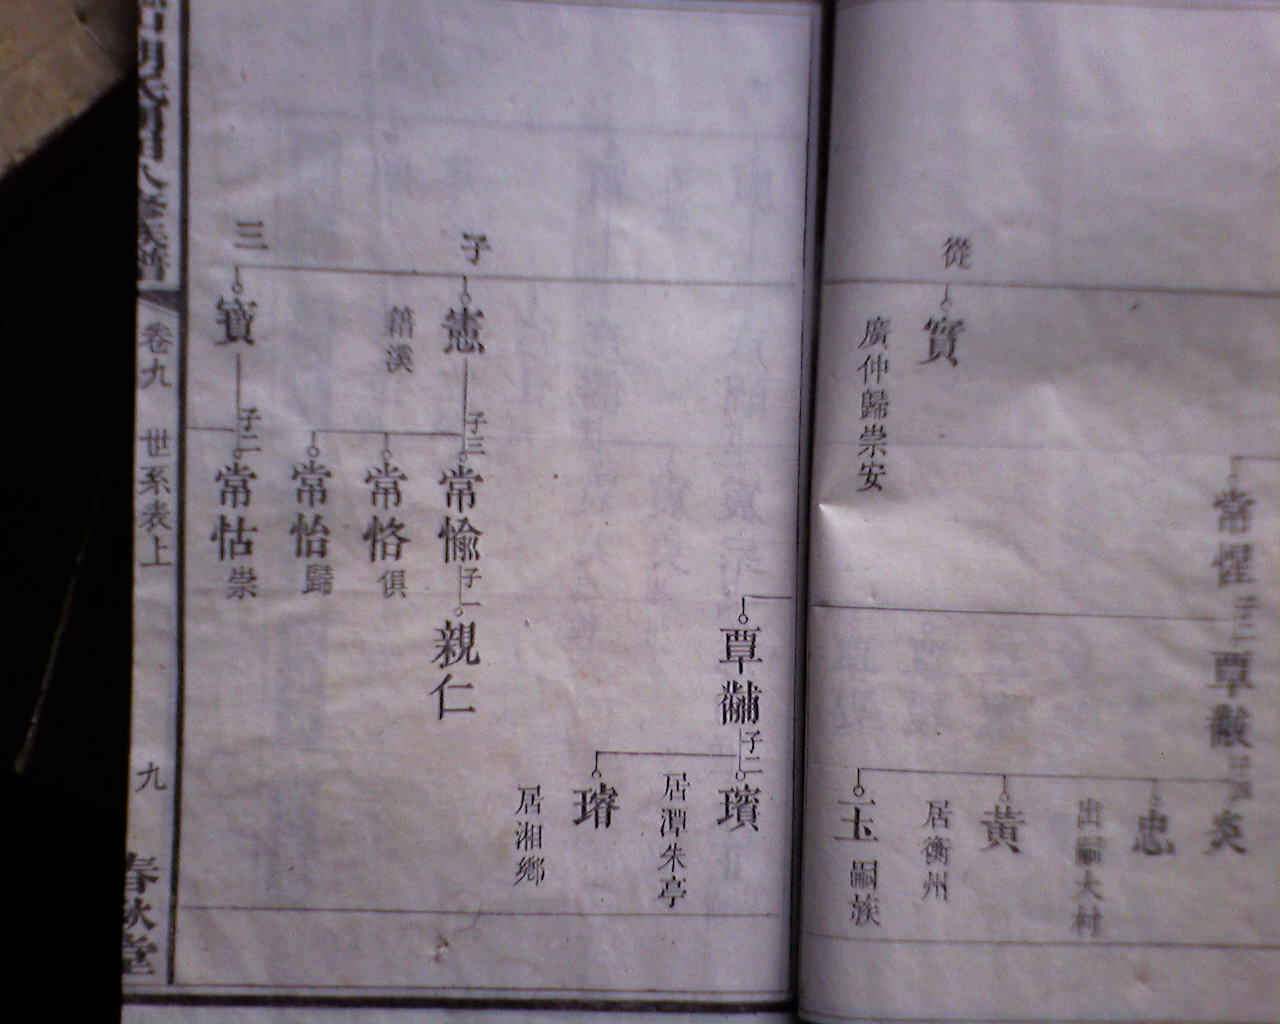 從
實
廣仲歸崇安
常惺
子二
覃
炎
忠
出嗣大村
黃
居衡州
玉
嗣族
覃黼
子二
璸
居潭朱亭
璿
居湘鄉
子
憲
籍溪
子三
常愉
子一
親仁
常恪
俱
常怡
歸
三
寶
子二
常怙
崇
胡氏
八修族譜
卷九
世系表上
九
春秋堂